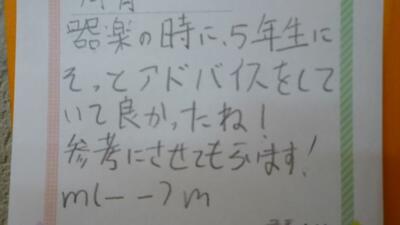 器楽の時に、5年生に
そっとアドバイスをして
いて良かったね!
参考にさせてもらいます!
m(--)m